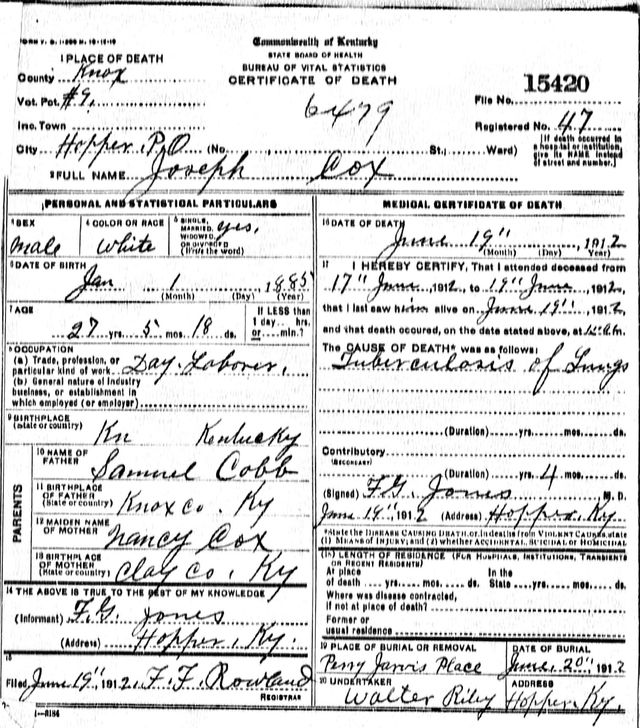 FORM V. S. 1-200 M. 10-15-10
Commonwealth of Kentucky
STATE BOARD OF HEALTH
BUREAU OF VITAL STATISTICS
CERTIFICATE OF DEATH
1 PLACE OF DEATH
County Knox
Vot. Pct. #9.
Inc. Town
City Hopper P.O (No. St.; Ward)
6479
15420
File No.
Registered No. 47
(If death occurred in a hospital or institution, give its NAME instead of street and number.)
2 FULL NAME Joseph Cox
PERSONAL AND STATISTICAL PARTICULARS
3 SEX
Male
4 COLOR OR RACE
White
5 SINGLE, MARRIED, WIDOWED OR DIVORCED (Write the word)
yes,
6 DATE OF BIRTH
Jan 1 1885
(Month) (Day) (Year)
7 AGE
27 yrs. 5 mos. 18 ds.
If LESS than 1 day.... hrs. or.... min.?
8 OCCUPATION
(a) Trade, profession, or particular kind of work. Day-Laborer,
(b) General nature of industry business, or establishment in which employed (or employer)
9 BIRTHPLACE
(State or country)
Kn Kentucky
PARENTS
10 NAME OF FATHER
Samuel Cobb
11 BIRTHPLACE OF FATHER (State or country)
Knox co. Ky
12 MAIDEN NAME OF MOTHER
Nancy Cox
13 BIRTHPLACE OF MOTHER (State or country)
Clay Co. Ky
14 THE ABOVE IS TRUE TO THE BEST OF MY KNOWLEDGE
(Informant) F. G. Jones
(Address) Hopper, Ky.
15
Filed June 19", 1912. F. F. Rowland
REGISTRAR
MEDICAL CERTIFICATE OF DEATH
16 DATE OF DEATH
June 19", 1912
(Month) (Day) (Year)
17 I HEREBY CERTIFY, That I attended deceased from
17" June, 1912, to 19" June, 1912,
that I last saw him alive on June 19", 1912,
and that death occured, on the date stated above, at m.
The CAUSE OF DEATH* was as follows:
Tuberculosis of Lungs
(Duration) yrs. mos. ds.
Contributory
(SECONDARY)
(Duration) yrs. 4 mos. ds.
(Signed) F. G. Jones M. D.
June 19", 1912 (Address) Hopper, Ky
*State the DISEASE CAUSING DEATH, or, in deaths from VIOLENT CAUSES, state (1) MEANS OF INJURY; and (2) whether ACCIDENTAL, SUICIDAL or HOMICIDAL
18 LENGTH OF RESIDENCE (FOR HOSPITALS, INSTITUTIONS, TRANSIENTS OR RECENT RESIDENTS)
At place of death yrs. mos. ds. In the State yrs. mos. ds.
Where was disease contracted, if not at place of death?
Former or usual residence
19 PLACE OF BURIAL OR REMOVAL
Perry Jarvis Place
DATE OF BURIAL
June. 20", 1912
20 UNDERTAKER
Walter Riley
ADDRESS
Hopper, Ky.